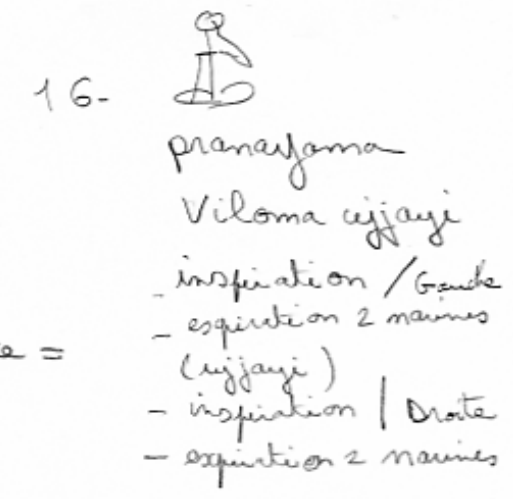 16-
pranayama
Viloma ujjayi
- inspiration / Gauche
- expiration 2 narines
(ujjayi)
- inspiration / Droite
- expiration 2 narines
e =